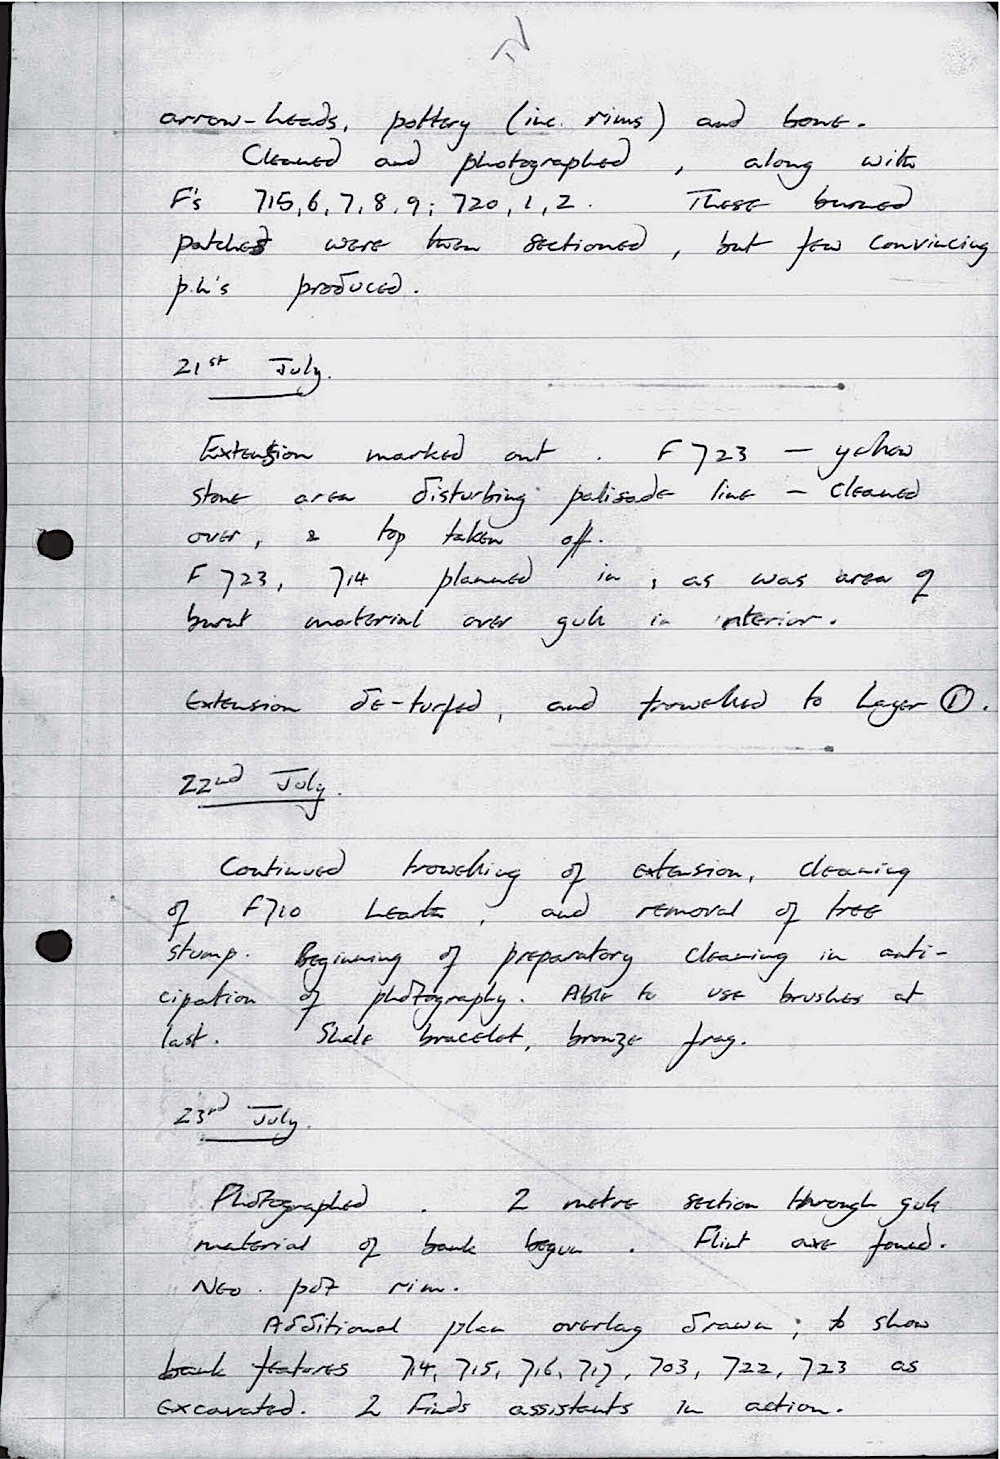 arrow-heads, pottery (inc. rims) and bone.
Cleaned and photographed, along with
F's 715, 6, 7, 8, 9; 720, 1, 2. These burned
patches were then sectioned, but few convincing
p.h's produced.
21st July.
Extension marked out. F 723 — yellow
stone area disturbing palisade line — cleaned
over, & top taken off.
F 723, 714 planned in, as was area of
burnt material over gully in interior.
Extension de-turfed, and trowelled to Layer ①.
22nd July.
Continued trowelling of extension, cleaning
of F710 hearth, and removal of tree
stump. Beginning of preparatory cleaning in anti-
cipation of photography. Able to use brushes at
last. Shale bracelet, bronze frag.
23rd July.
Photographed. 2 metre section through
material of bank begun. Flint axe found.
Neo. pot rim.
Additional plan overlay drawn, to show
bank features 714, 715, 716, 717, 703, 722, 723 as
excavated. 2 Finds assistants in action.